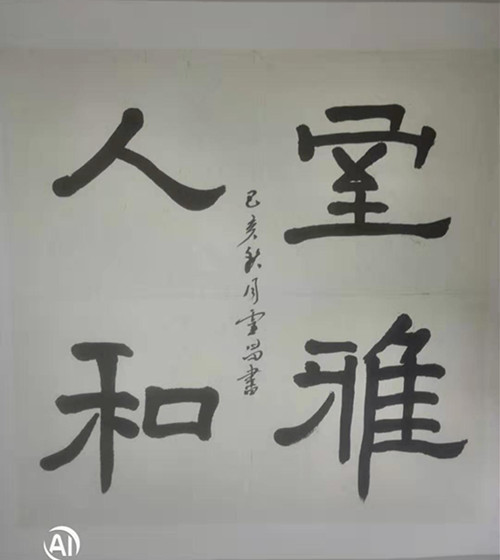 室雅
人和
己亥秋月雲昌書
AI